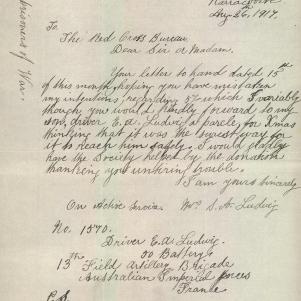 Prisoners of War.
Narracoorte
Aug 26, 1917.
To
The Red Cross Bureau
Dear Sir or Madam.
Your letter to hand dated 15th
of this month, hoping you have mistaken
my intentions, regarding £ which I
though you would kindly forward to my
son, driver E.A. Ludwig a parcle, for Xmas
thinking that it was the surest way for
it to reach him safely. I would gladly
have the Society helped by the donation
thanking you untiring trouble.
I am yours sincerly
On Active Service Mrs S. A. Ludwig
No. 1570.
Driver E.A. Ludwig.
50 Battery
13th Field Artillery Brigade
Australian Imperial forces
France